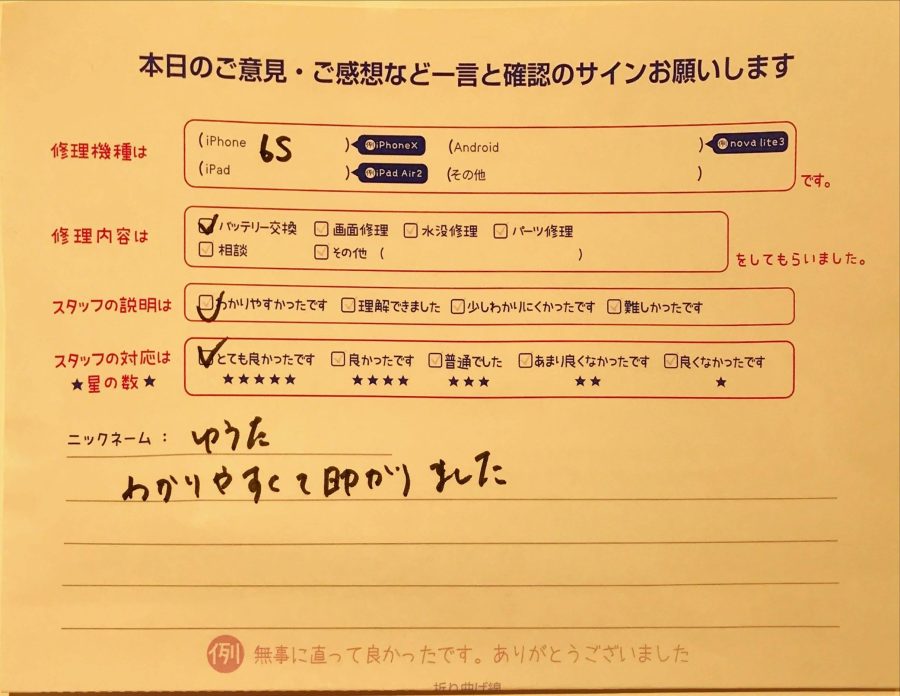 本日のご意見・ご感想など一言と確認のサインお願いします
修理機種は (iPhone 6S ) 例 iPhoneX (Android ) 例 nova lite3
(iPad ) 例 iPad Air2 (その他 ) です。
修理内容は バッテリー交換 画面修理 水没修理 パーツ修理
相談 その他 ( ) をしてもらいました。
スタッフの説明は わかりやすかったです 理解できました 少しわかりにくかったです 難しかったです
スタッフの対応は とても良かったです 良かったです 普通でした あまり良くなかったです 良くなかったです
★星の数★ ★★★★★ ★★★★ ★★★ ★★ ★
ニックネーム： ゆうた
わかりやすくて助かりました
例 無事に直って良かったです。ありがとうございました
折り曲げ線